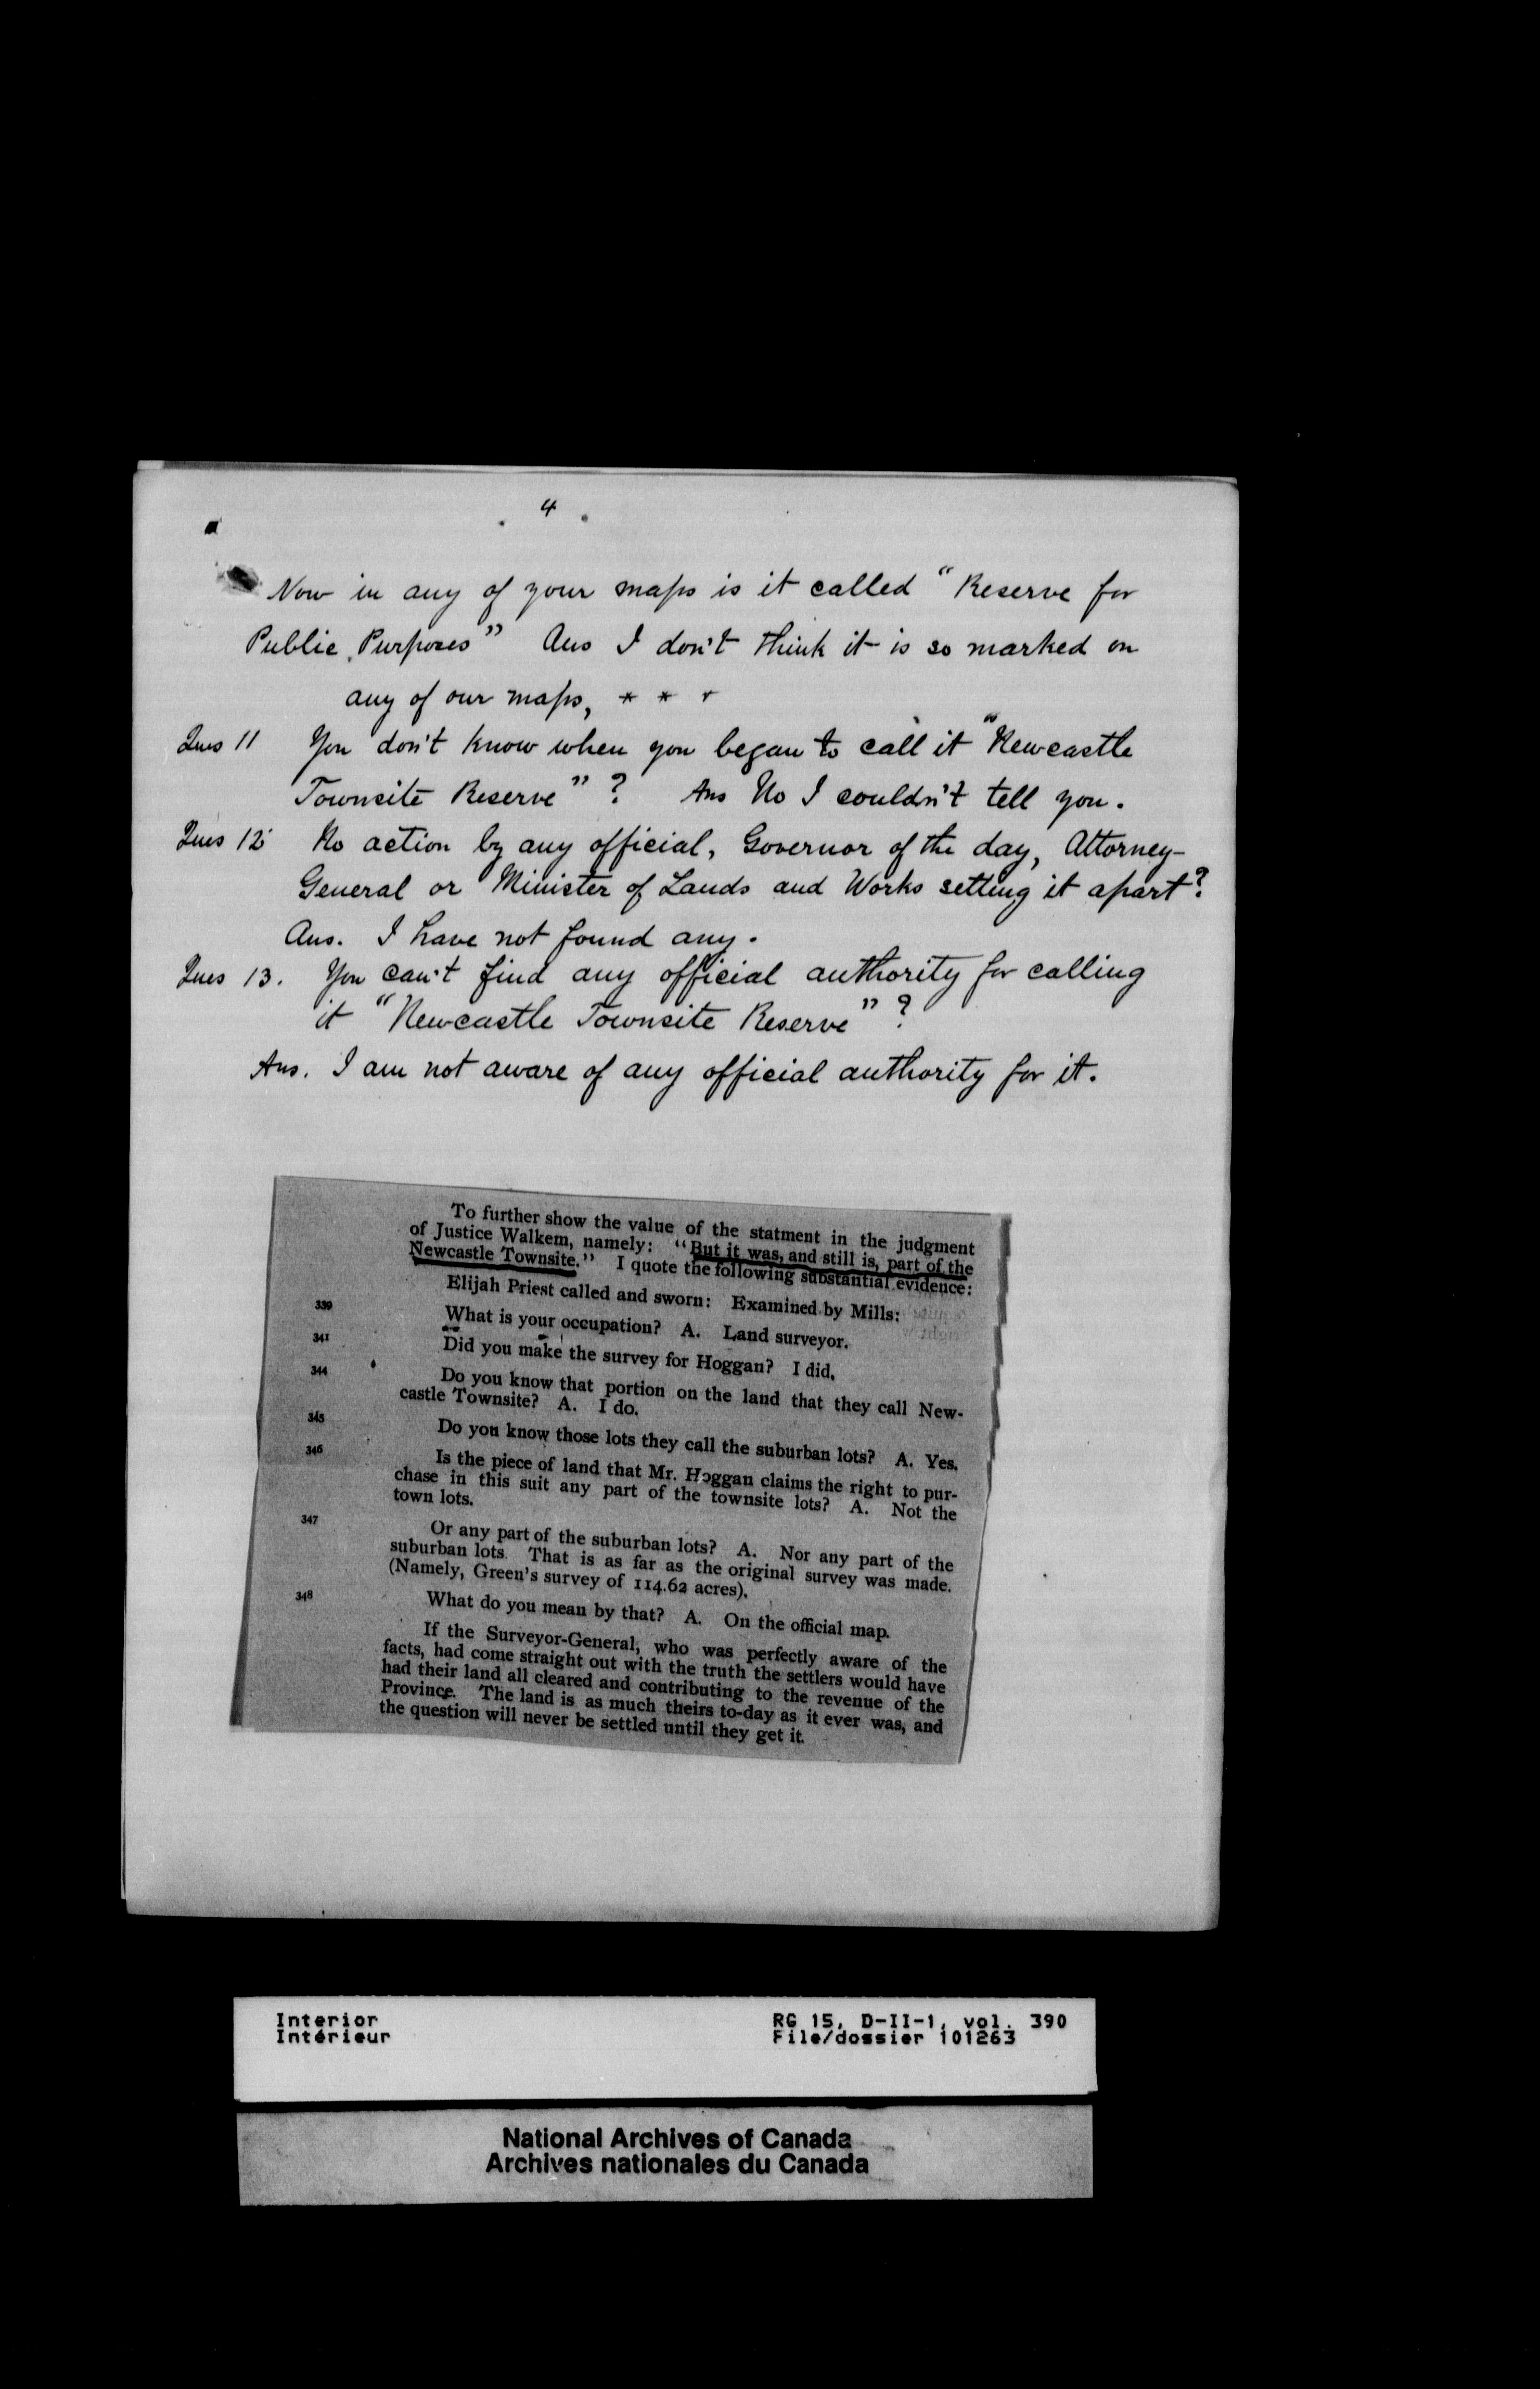 4
Now in any of your maps is it called "Reserve for
Public Purposes" Ans I don't think it is so marked on
any of our maps, * * *
Ques 11 You don't know when you began to call it "Newcastle
Townsite Reserve"? Ans No I couldn't tell you.
Ques 12 No action by any official, Governor of the day, Attorney-
General or Minister of Lands and Works setting it apart?
Ans. I have not found any.
Ques 13. You can't find any official authority for calling
it "Newcastle Townsite Reserve"?
Ans. I am not aware of any official authority for it.
To further show the value of the statment in the judgment
of Justice Walkem, namely: "But it was, and still is, part of the
Newcastle Townsite." I quote the following substantial evidence:
Elijah Priest called and sworn: Examined by Mills:
339 What is your occupation? A. Land surveyor.
341 Did you make the survey for Hoggan? I did.
344 Do you know that portion on the land that they call New-
castle Townsite? A. I do.
345 Do you know those lots they call the suburban lots? A. Yes.
346 Is the piece of land that Mr. Hoggan claims the right to pur-
chase in this suit any part of the townsite lots? A. Not the
town lots.
347 Or any part of the suburban lots? A. Nor any part of the
suburban lots. That is as far as the original survey was made.
(Namely, Green's survey of 114.62 acres).
348 What do you mean by that? A. On the official map.
If the Surveyor-General, who was perfectly aware of the
facts, had come straight out with the truth the settlers would have
had their land all cleared and contributing to the revenue of the
Province. The land is as much theirs to-day as it ever was, and
the question will never be settled until they get it.
Interior RG 15, D-II-1, vol. 390
Intérieur File/dossier 101263
National Archives of Canada
Archives nationales du Canada